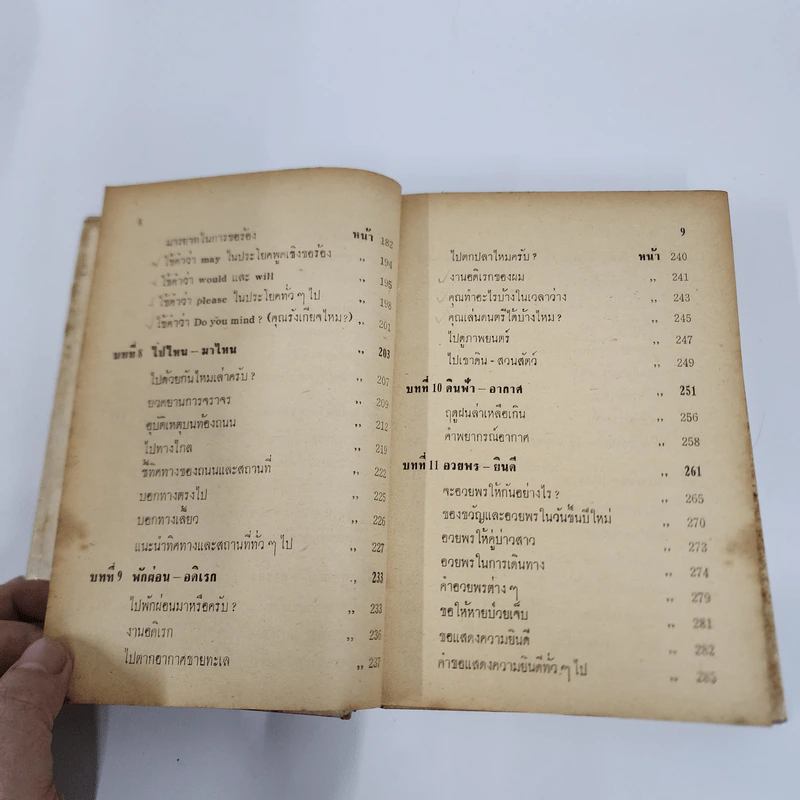 มารยาทในการขอร้อง หน้า 182
ใช้คำว่า may ในประโยคพูดเชิงขอร้อง ,, 194
ใช้คำว่า would และ will ,, 195
ใช้คำว่า please ในประโยคทั่ว ๆ ไป ,, 198
ใช้คำว่า Do you mind ? (คุณรังเกียจไหม ?) ,, 201
บทที่ 8 ไปไหน – มาไหน ,, 203
ไปด้วยกันไหมเล่าครับ ? ,, 207
ยวดยานการจราจร ,, 209
อุบัติเหตุบนท้องถนน ,, 212
ไปทางไกล ,, 219
ชี้ทิศทางของถนนและสถานที่ ,, 222
บอกทางตรงไป ,, 225
บอกทางเลี้ยว ,, 226
แนะนำทิศทางและสถานที่ทั่ว ๆ ไป ,, 227
บทที่ 9 พักผ่อน – อดิเรก ,, 233
ไปพักผ่อนมาหรือครับ ? ,, 233
งานอดิเรก ,, 236
ไปตากอากาศชายทะเล ,, 237
9
ไปตกปลาไหมครับ ? หน้า 240
งานอดิเรกของผม ,, 241
คุณทำอะไรบ้างในเวลาว่าง ,, 243
คุณเล่นดนตรีได้บ้างไหม ? ,, 245
ไปดูภาพยนตร์ ,, 247
ไปเขาดิน - สวนสัตว์ ,, 249
บทที่ 10 ดินฟ้า – อากาศ ,, 251
ฤดูฝนล่าเหลือเกิน ,, 256
คำพยากรณ์อากาศ ,, 258
บทที่ 11 อวยพร – ยินดี ,, 261
จะอวยพรให้กันอย่างไร ? ,, 265
ของขวัญและอวยพรในวันขึ้นปีใหม่ ,, 270
อวยพรให้คู่บ่าวสาว ,, 273
อวยพรในการเดินทาง ,, 274
คำอวยพรต่าง ๆ ,, 279
ขอให้หายป่วยเจ็บ ,, 281
ขอแสดงความยินดี ,, 282
คำขอแสดงความยินดีทั่ว ๆ ไป ,, 285